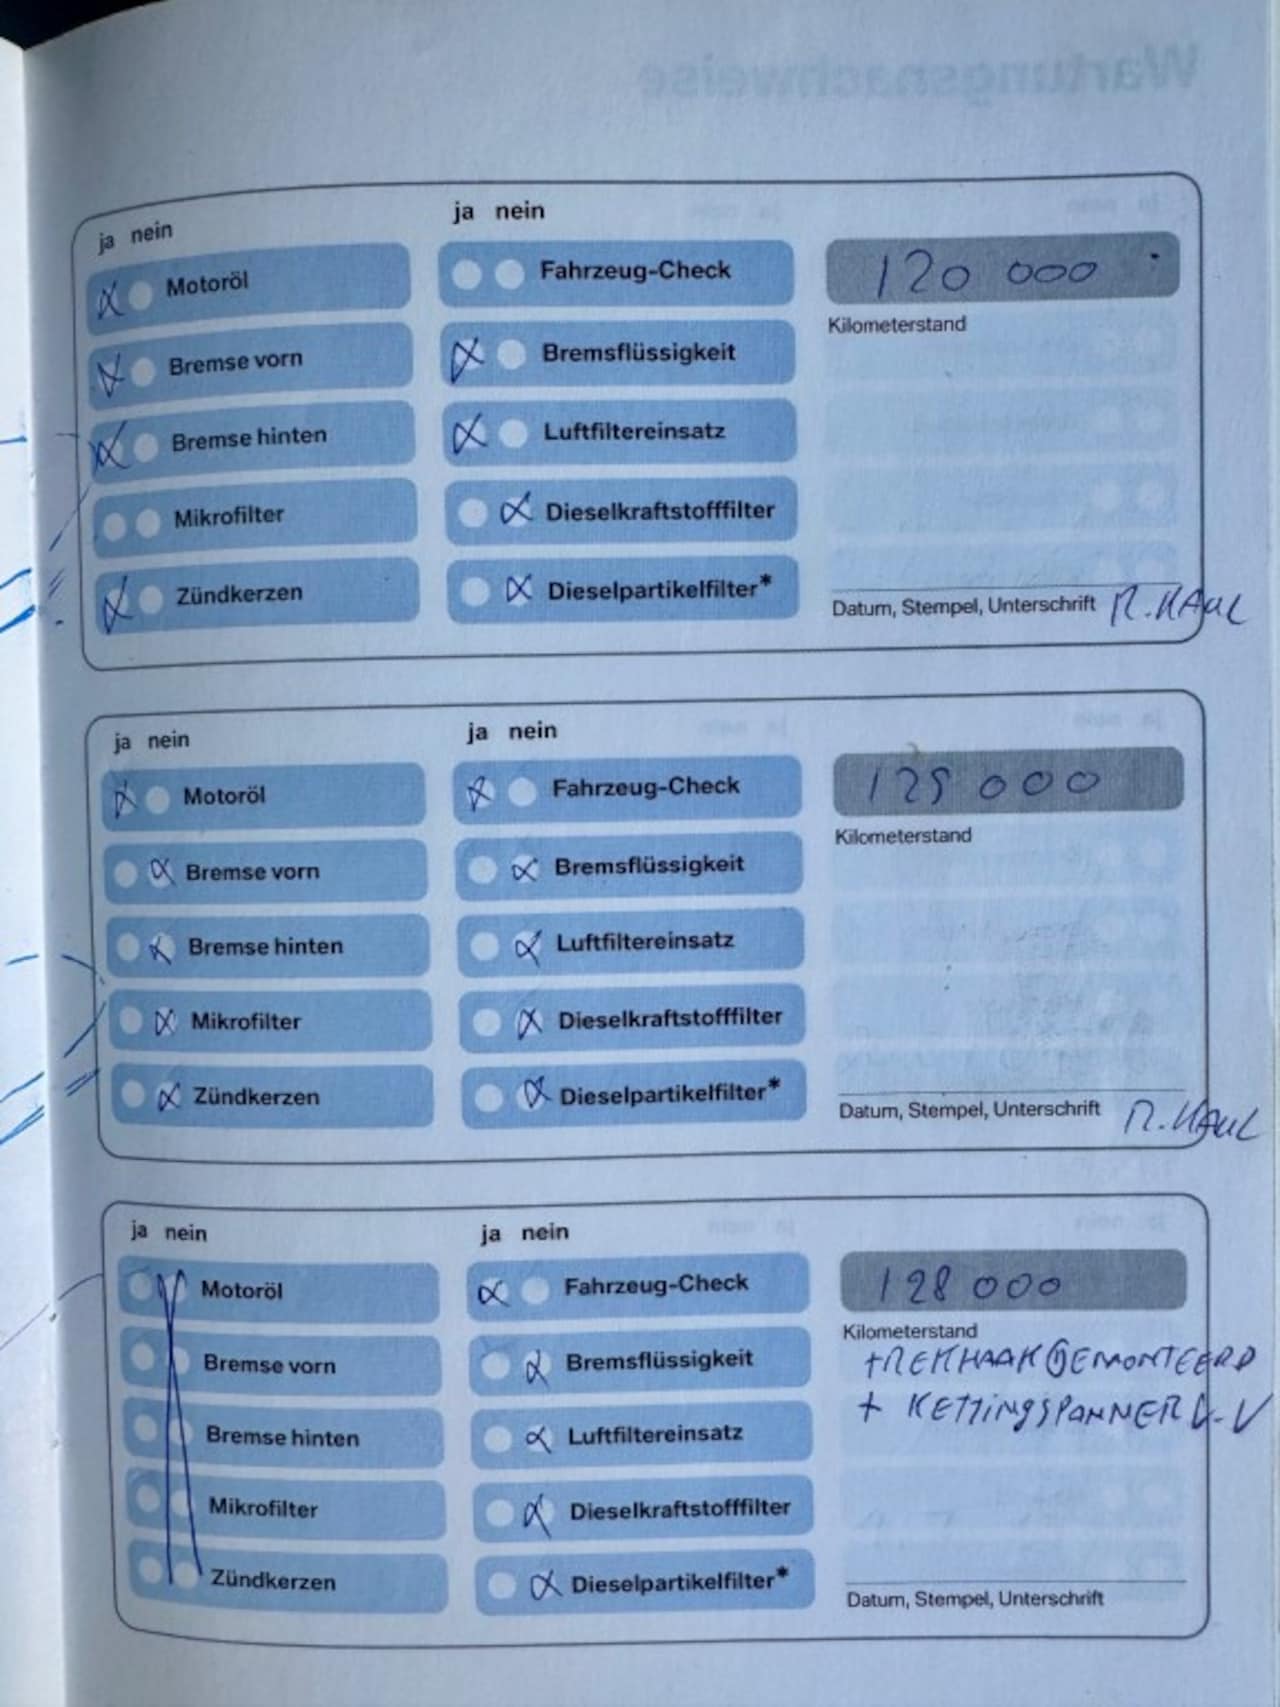 Wartungsnachweise
ja nein
ja nein
Motoröl
Fahrzeug-Check
120 000
Bremse vorn
Bremsflüssigkeit
Kilometerstand
Bremse hinten
Luftfiltereinsatz
Mikrofilter
Dieselkraftstofffilter
Zündkerzen
Dieselpartikelfilter*
Datum, Stempel, Unterschrift R.HAUL
ja nein
ja nein
Motoröl
Fahrzeug-Check
125 000
Bremse vorn
Bremsflüssigkeit
Kilometerstand
Bremse hinten
Luftfiltereinsatz
Mikrofilter
Dieselkraftstofffilter
Zündkerzen
Dieselpartikelfilter*
Datum, Stempel, Unterschrift R.HAUL
ja nein
ja nein
Motoröl
Fahrzeug-Check
128 000
Bremse vorn
Bremsflüssigkeit
Kilometerstand
+REKHAAK GEMONTEERD
+ KETTINGSPANNER
Bremse hinten
Luftfiltereinsatz
Mikrofilter
Dieselkraftstofffilter
Zündkerzen
Dieselpartikelfilter*
Datum, Stempel, Unterschrift